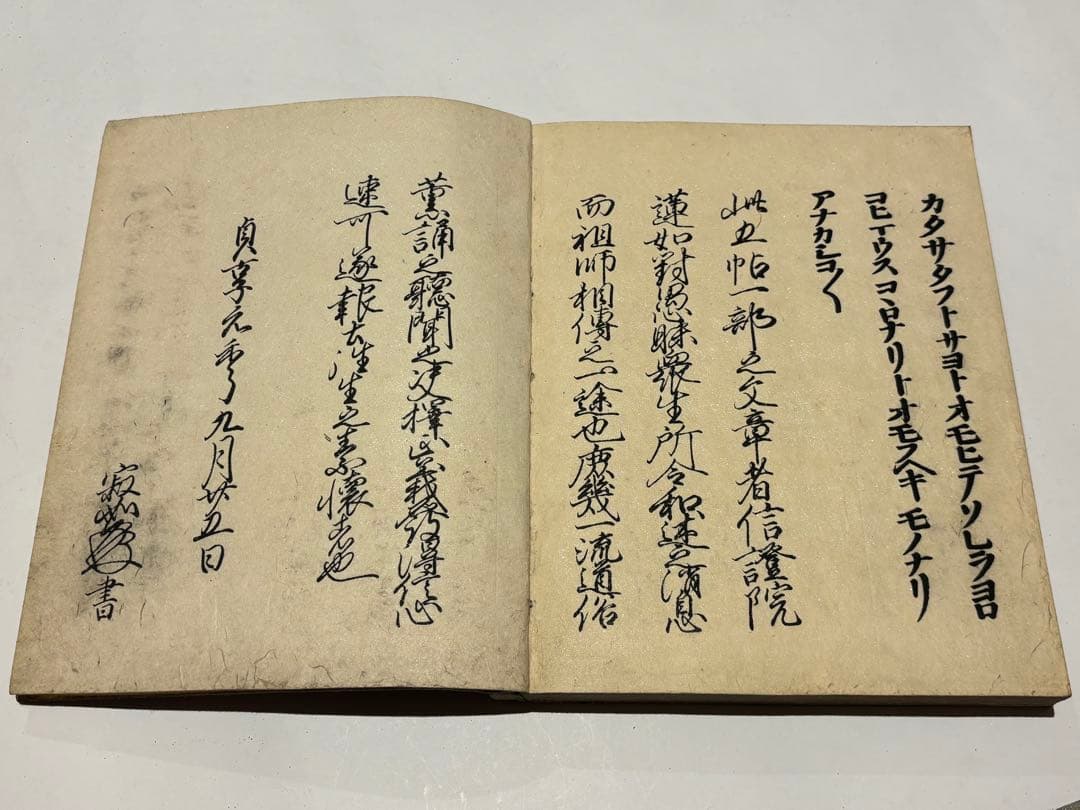 カタサタフトサヨトオモヒテソレヲヨロ
ヨヒテウスコヽロナリトオモフヘキモノナリ
アナカシコ〱
此五帖一部之文章者信證院
蓮如對愚昧衆生所令和述之消息
而祖師相傳之一途也庶幾一流道俗
薫誦之聽聞之史擇正義發得信心
速可遂報土往生之素懷者也
貞享元 九月廿五日
寂 書